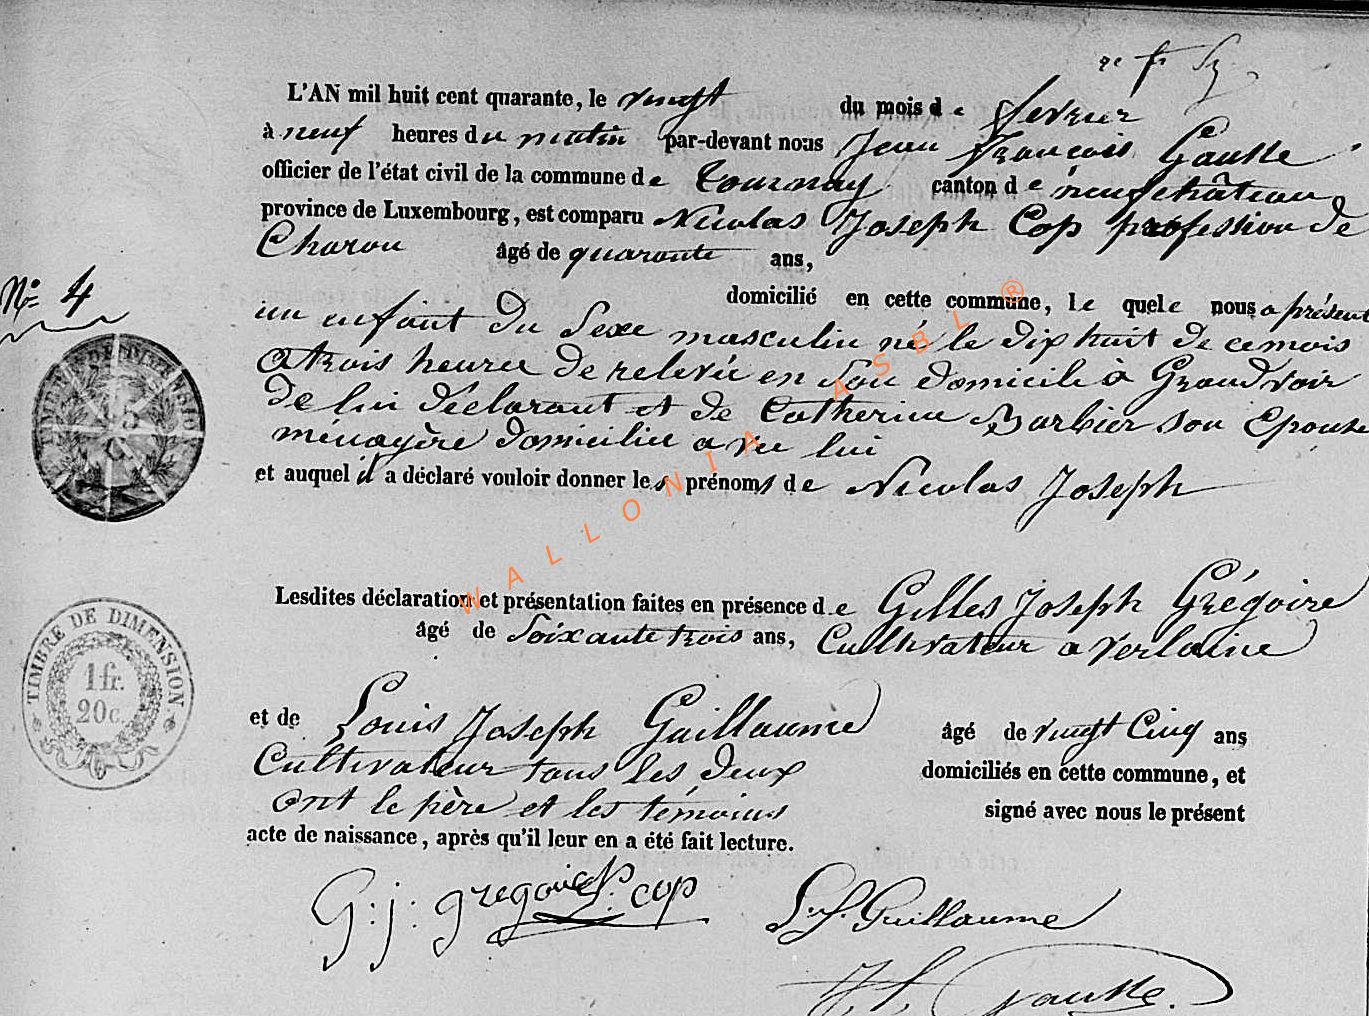 L'AN mil huit cent quarante, le vingt du mois de fevrier
à neuf heures du matin par-devant nous Jean François Gausse
officier de l'état civil de la commune de Tournay canton de neufchâteau
province de Luxembourg, est comparu Nicolas Joseph Cop profession de
Charon âgé de quarante ans,
N.º 4
domicilié en cette commune, le quele nous a présenté
un enfant du Sexe masculin né le dix huit de ce mois
a trois heures de relevée en son domicile à Grandvoir
de lui déclarant et de Catherine Barbier son Epouse
ménagère domiciliee avec lui
et auquel il a déclaré vouloir donner les prénoms de Nicolas Joseph
WALLONIA ASBL ®
Lesdites déclaration et présentation faites en présence de Gilles Joseph Grégoire
âgé de Soixante trois ans, Cultivateur a Verlaine
TIMBRE DE DIMENSION
1 fr.
20 c.
et de Louis Joseph Guillaume âgé de vingt Cinq ans
Cultivateur tous les deux domiciliés en cette commune, et
ont le père et les témoins signé avec nous le présent
acte de naissance, après qu'il leur en a été fait lecture.
G: j: gregoire cop L. J. Guillaume
J. f. Gausse.